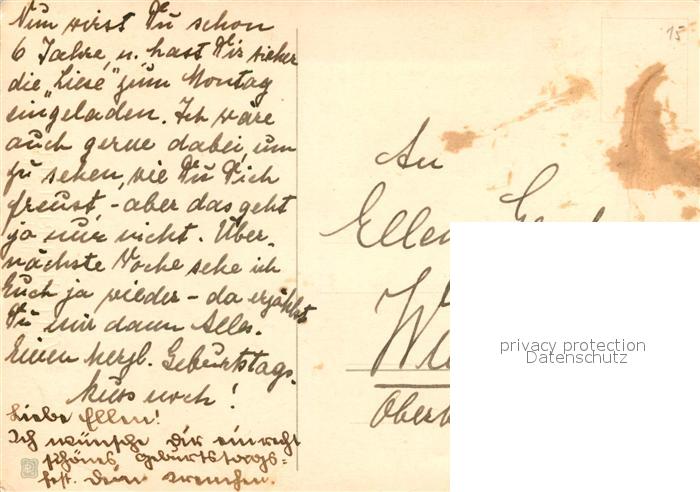 Nun wirst Du schon
6 Jahre, u. hast Dir sicher
die „Liese" zum Montag
eingeladen. Ich wäre
auch gerne dabei, um
zu sehen, wie Du Dich
freust, - aber das geht
ja nur nicht. Über-
nächste Woche sehe ich
Euch ja wieder - da erzählst
Du mir dann Alles.
Einen herzl. Geburtstags-
kuss noch!
Liebe Ellen!
Ich wünsche dir ein recht
schönes Geburtstags-
fest. Dein
15
An
Ellen
privacy protection
Datenschutz